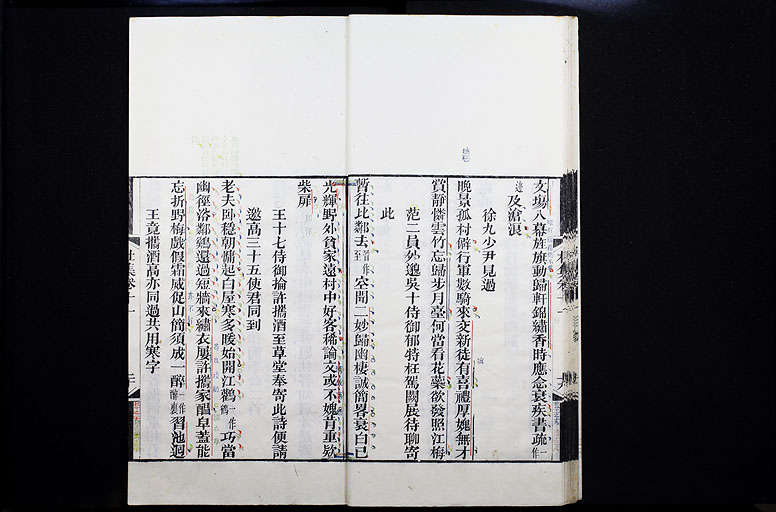 文場入幕旌旗動歸軒錦繡香時應念衰疾書疏一作
遠及滄浪
徐九少尹見過
晚景孤村僻行軍數騎來交新徒有喜禮厚媿無才
賞靜憐雲竹忘歸步月臺何當看花蘂欲發照江梅
范二員外邈吳十侍御郁特枉駕闕展待聊寄
此
暫往比鄰去一作至空聞二妙歸幽棲誠簡略衰白已
光輝野外貧家遠村中好客稀論文或不媿肯重款
柴扉
王十七侍御掄許攜酒至草堂奉寄此詩便請
邀高三十五使君同到
老夫臥穩朝慵起白屋寒多暖始開江鸛一作鶴巧當
幽徑浴鄰雞還過短牆來繡衣屢許攜家醞皁蓋能
忘折野梅戲假霜威促山簡須成一醉一作習池迴
王竟攜酒高亦同過共用寒字
杜集卷十一